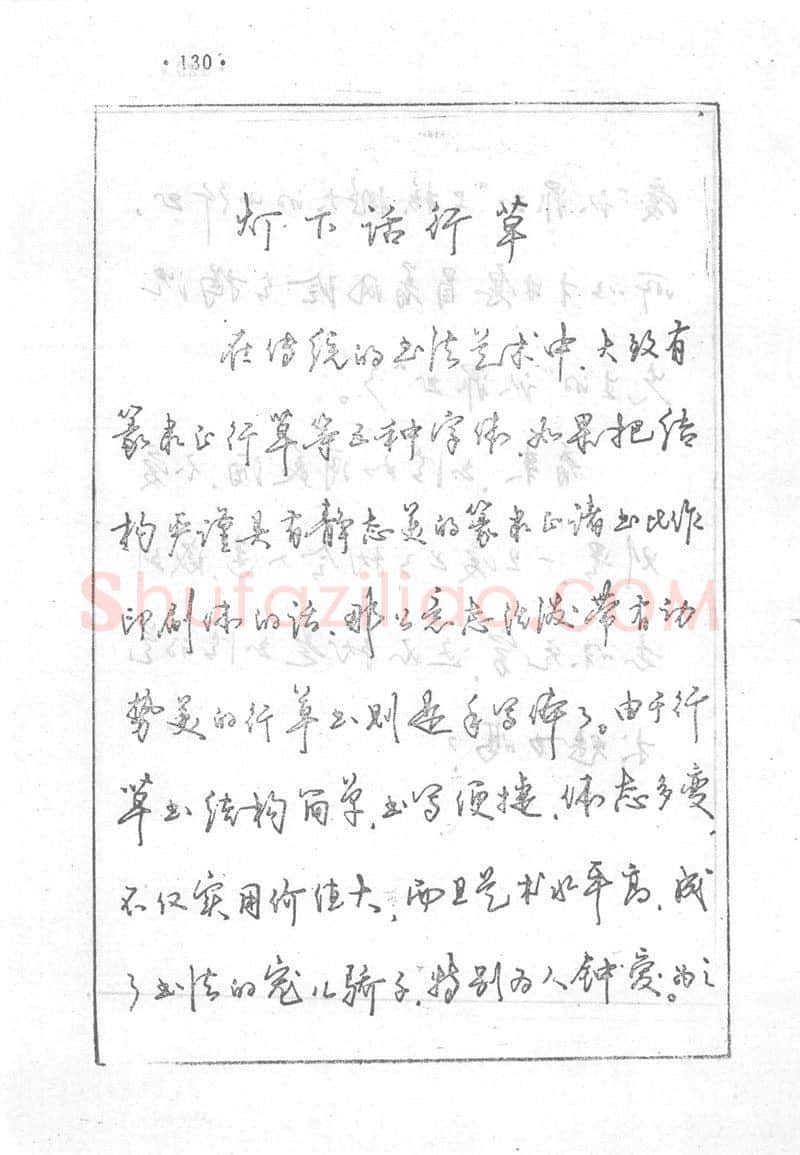 ·130·
灯下话行草
在传统的书法艺术中、大致有
篆隶正行草等五种字体、如果把结
构严谨具有静态美的篆隶正诸书比作
印刷体的话、那么意态活泼带有动
势美的行草书则是手写体了。由于行
草书结构简单、书写便捷、体态多变、
不仅实用价值大，而且艺术水平高、成
了书法的宠儿骄子、特别为人钟爱。为之
Shufaziliao.COM